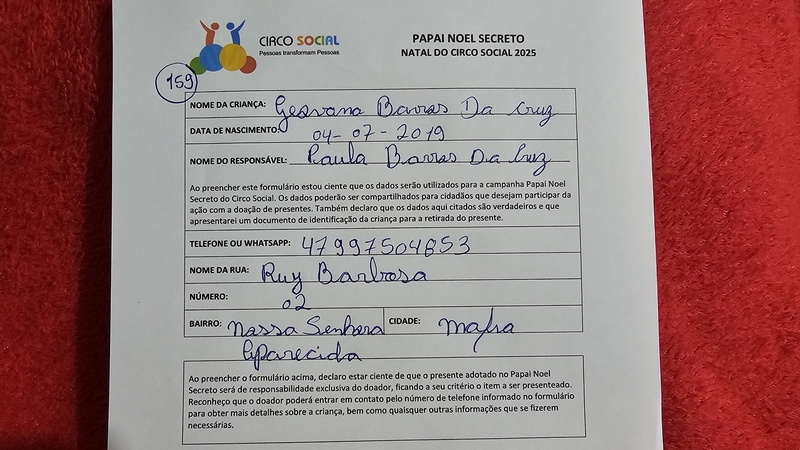 CIRCO SOCIAL
Pessoas transformam Pessoas
PAPAI NOEL SECRETO
NATAL DO CIRCO SOCIAL 2025
159
NOME DA CRIANÇA: Gesvana Barros Da Cruz
DATA DE NASCIMENTO: 04-07-2019
NOME DO RESPONSÁVEL: Paula Barros Da Cruz
Ao preencher este formulário estou ciente que os dados serão utilizados para a campanha Papai Noel
Secreto do Circo Social. Os dados poderão ser compartilhados para cidadãos que desejam participar da
ação com a doação de presentes. Também declaro que os dados aqui citados são verdadeiros e que
apresentarei um documento de identificação da criança para a retirada do presente.
TELEFONE OU WHATSAPP: 47997504853
NOME DA RUA: Ruy Barbosa
NÚMERO: 02
BAIRRO: Nossa Senhora CIDADE: Mafra
Aparecida
Ao preencher o formulário acima, declaro estar ciente de que o presente adotado no Papai Noel
Secreto será de responsabilidade exclusiva do doador, ficando a seu critério o item a ser presenteado.
Reconheço que o doador poderá entrar em contato pelo número de telefone informado no formulário
para obter mais detalhes sobre a criança, bem como quaisquer outras informações que se fizerem
necessárias.